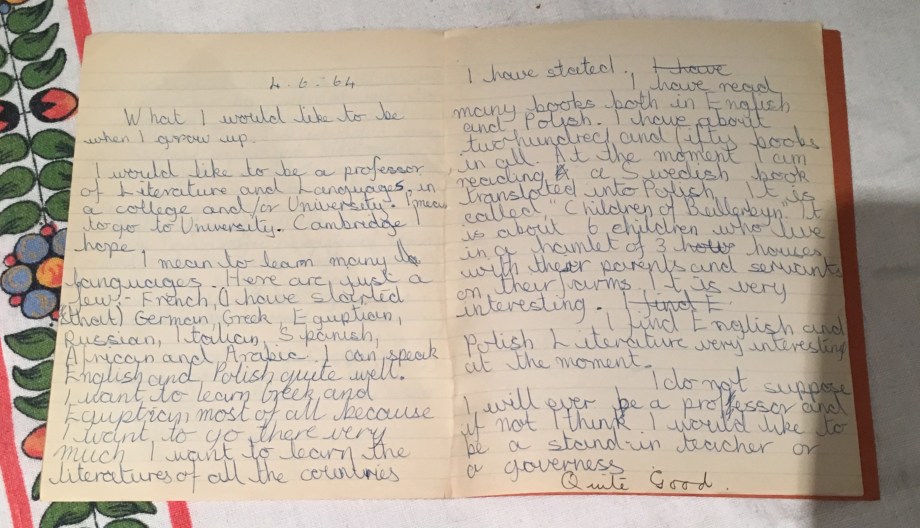 4. 6. 64
What I would like to be
when I grow up.
I would like to be a professor
of Literature and Languages, in
a college and/or University. I mean
to go to University. Cambridge I
hope.
I mean to learn many
languages. Here are just a
few:- French, (I have started
that) German, Greek, Eguptian,
Russian, Italian, Spanish,
African and Arabic. I can speak
English and Polish quite well.
I want to learn Greek and
Eguptian most of all because
I want to go there very
much. I want to learn the
literatures of all the countries
I have stated. I have
I have read
many books both in English
and Polish. I have about
two hundred and fifty books
in all. At the moment I am
reading a Swedish book
translated into Polish. It is
called "Children of Bullerbyn". It
is about 6 children who live
in a hamlet of 3 houses
with their parents and servants
on their farms. It is very
interesting. I find E
I find English and
Polish Literature very interesting
at the moment.
I do not suppose
I will ever be a professor and
if not I think I would like to
be a stand-in teacher or
a governess
Quite Good.